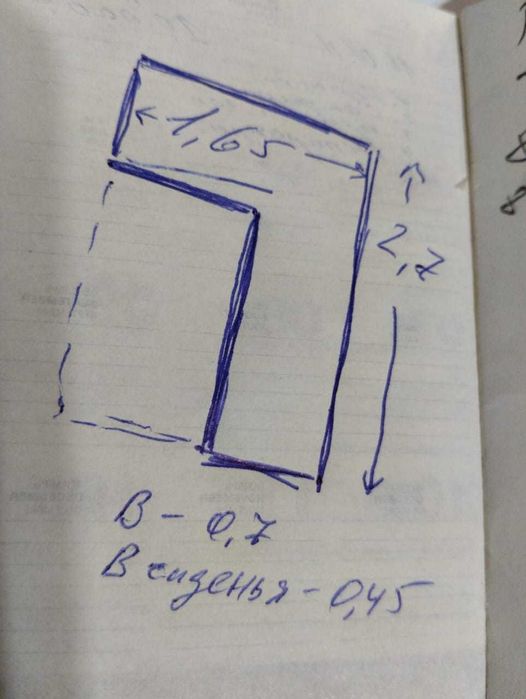 1,65
2,7
В - 0,7
В сиденья - 0,45